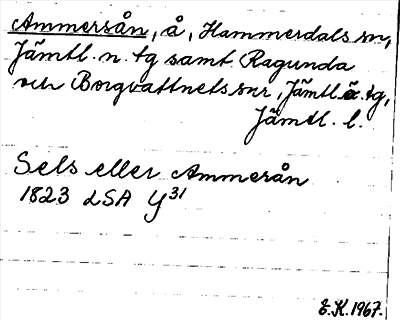 Ammersån, å, Hammerdals sn,
Jämtl. n. tg samt Ragunda
och Borgvattnets snr, Jämtl. ö. tg,
Jämtl. l.
Sels eller Ammerån
1823 LSA Y31
E.K. 1967.